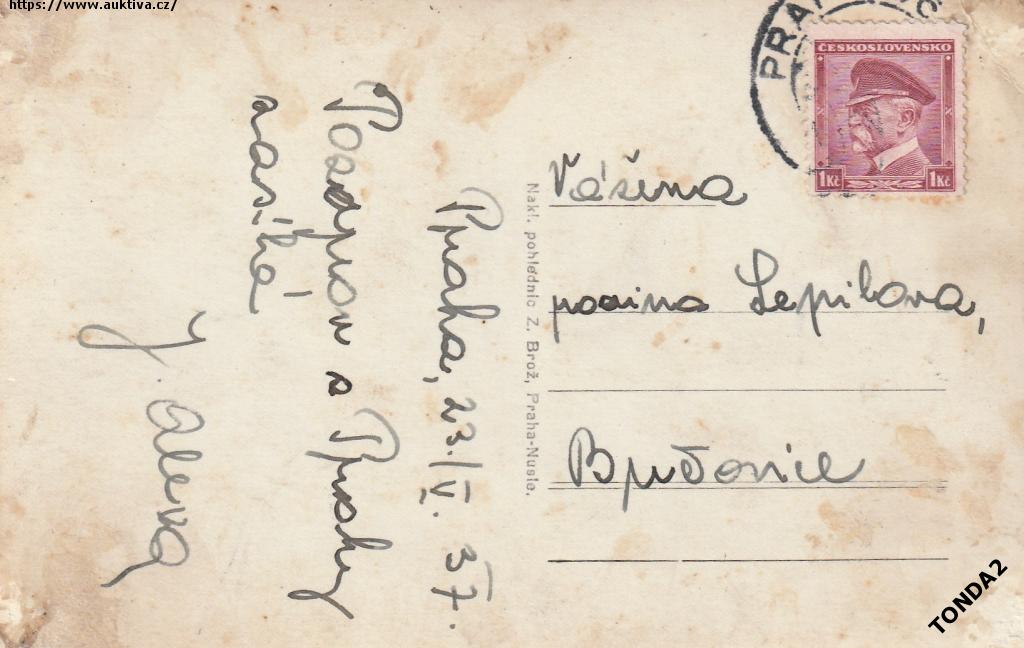 https://www.auktiva.cz/
PRAHA
ČESKOSLOVENSKO
1 Kč 1 Kč
Praha, 23./V. 37.
Pozdprav s Prahy
zasílá
J.
Nakl. pohlednic Z. Brož, Praha-Nusle.
Vážena
panina Lepilova,
Bpučovice
TONDA2